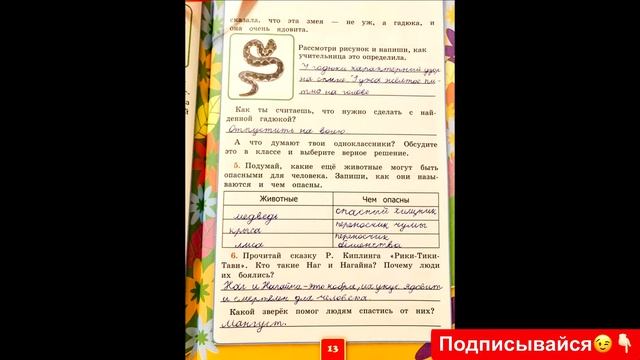 сказала, что эта змея — не уж, а гадюка, и
она очень ядовита.
Рассмотри рисунок и напиши, как
учительница это определила.
У гадюки характерный узор
на спине. У ужа жёлтое пя-
тно на голове
Как ты считаешь, что нужно сделать с най-
денной гадюкой?
Отпустить на волю
А что думают твои одноклассники? Обсудите
это в классе и выберите верное решение.
5. Подумай, какие ещё животные могут быть
опасными для человека. Запиши, как они назы-
ваются и чем опасны.
Животные Чем опасны
медведь опасный хищник
крыса переносчик чумы
лиса переносчик бешенства
6. Прочитай сказку Р. Киплинга «Рики-Тики-
Тави». Кто такие Наг и Нагайна? Почему люди
их боялись?
Наг и Нагайна-это кобра, их укус ядовит
и смертелен для человека.
Какой зверёк помог людям спастись от них?
Мангуст.
13
Подписывайся